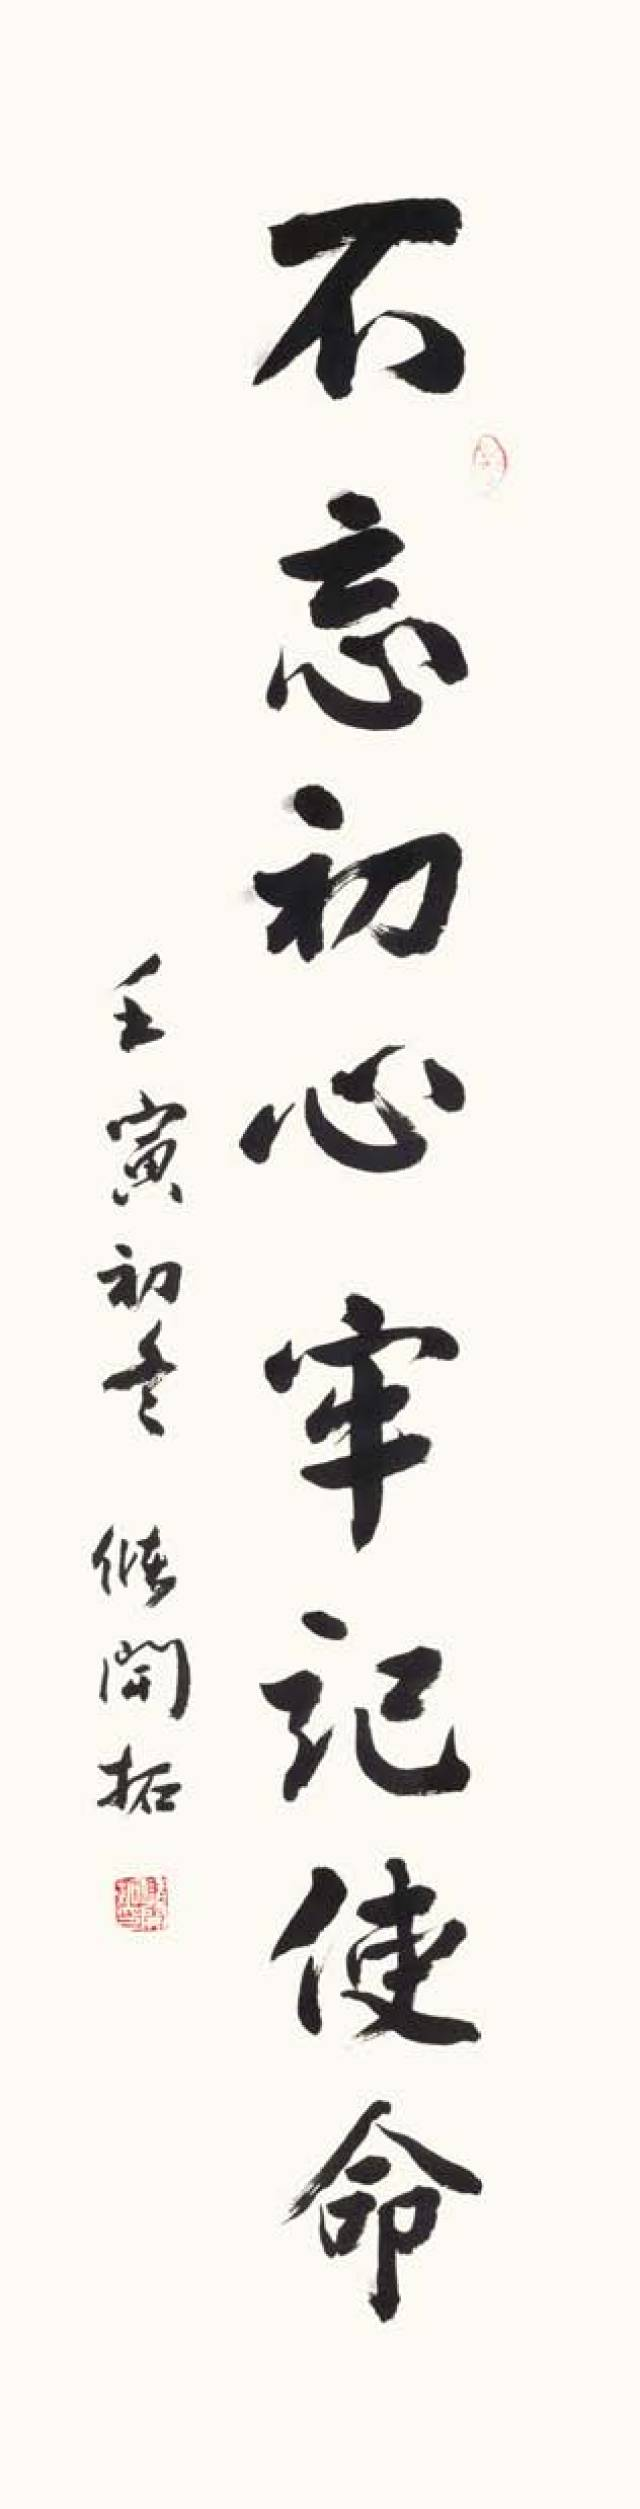 不忘初心牢记使命
壬寅初冬 開拓